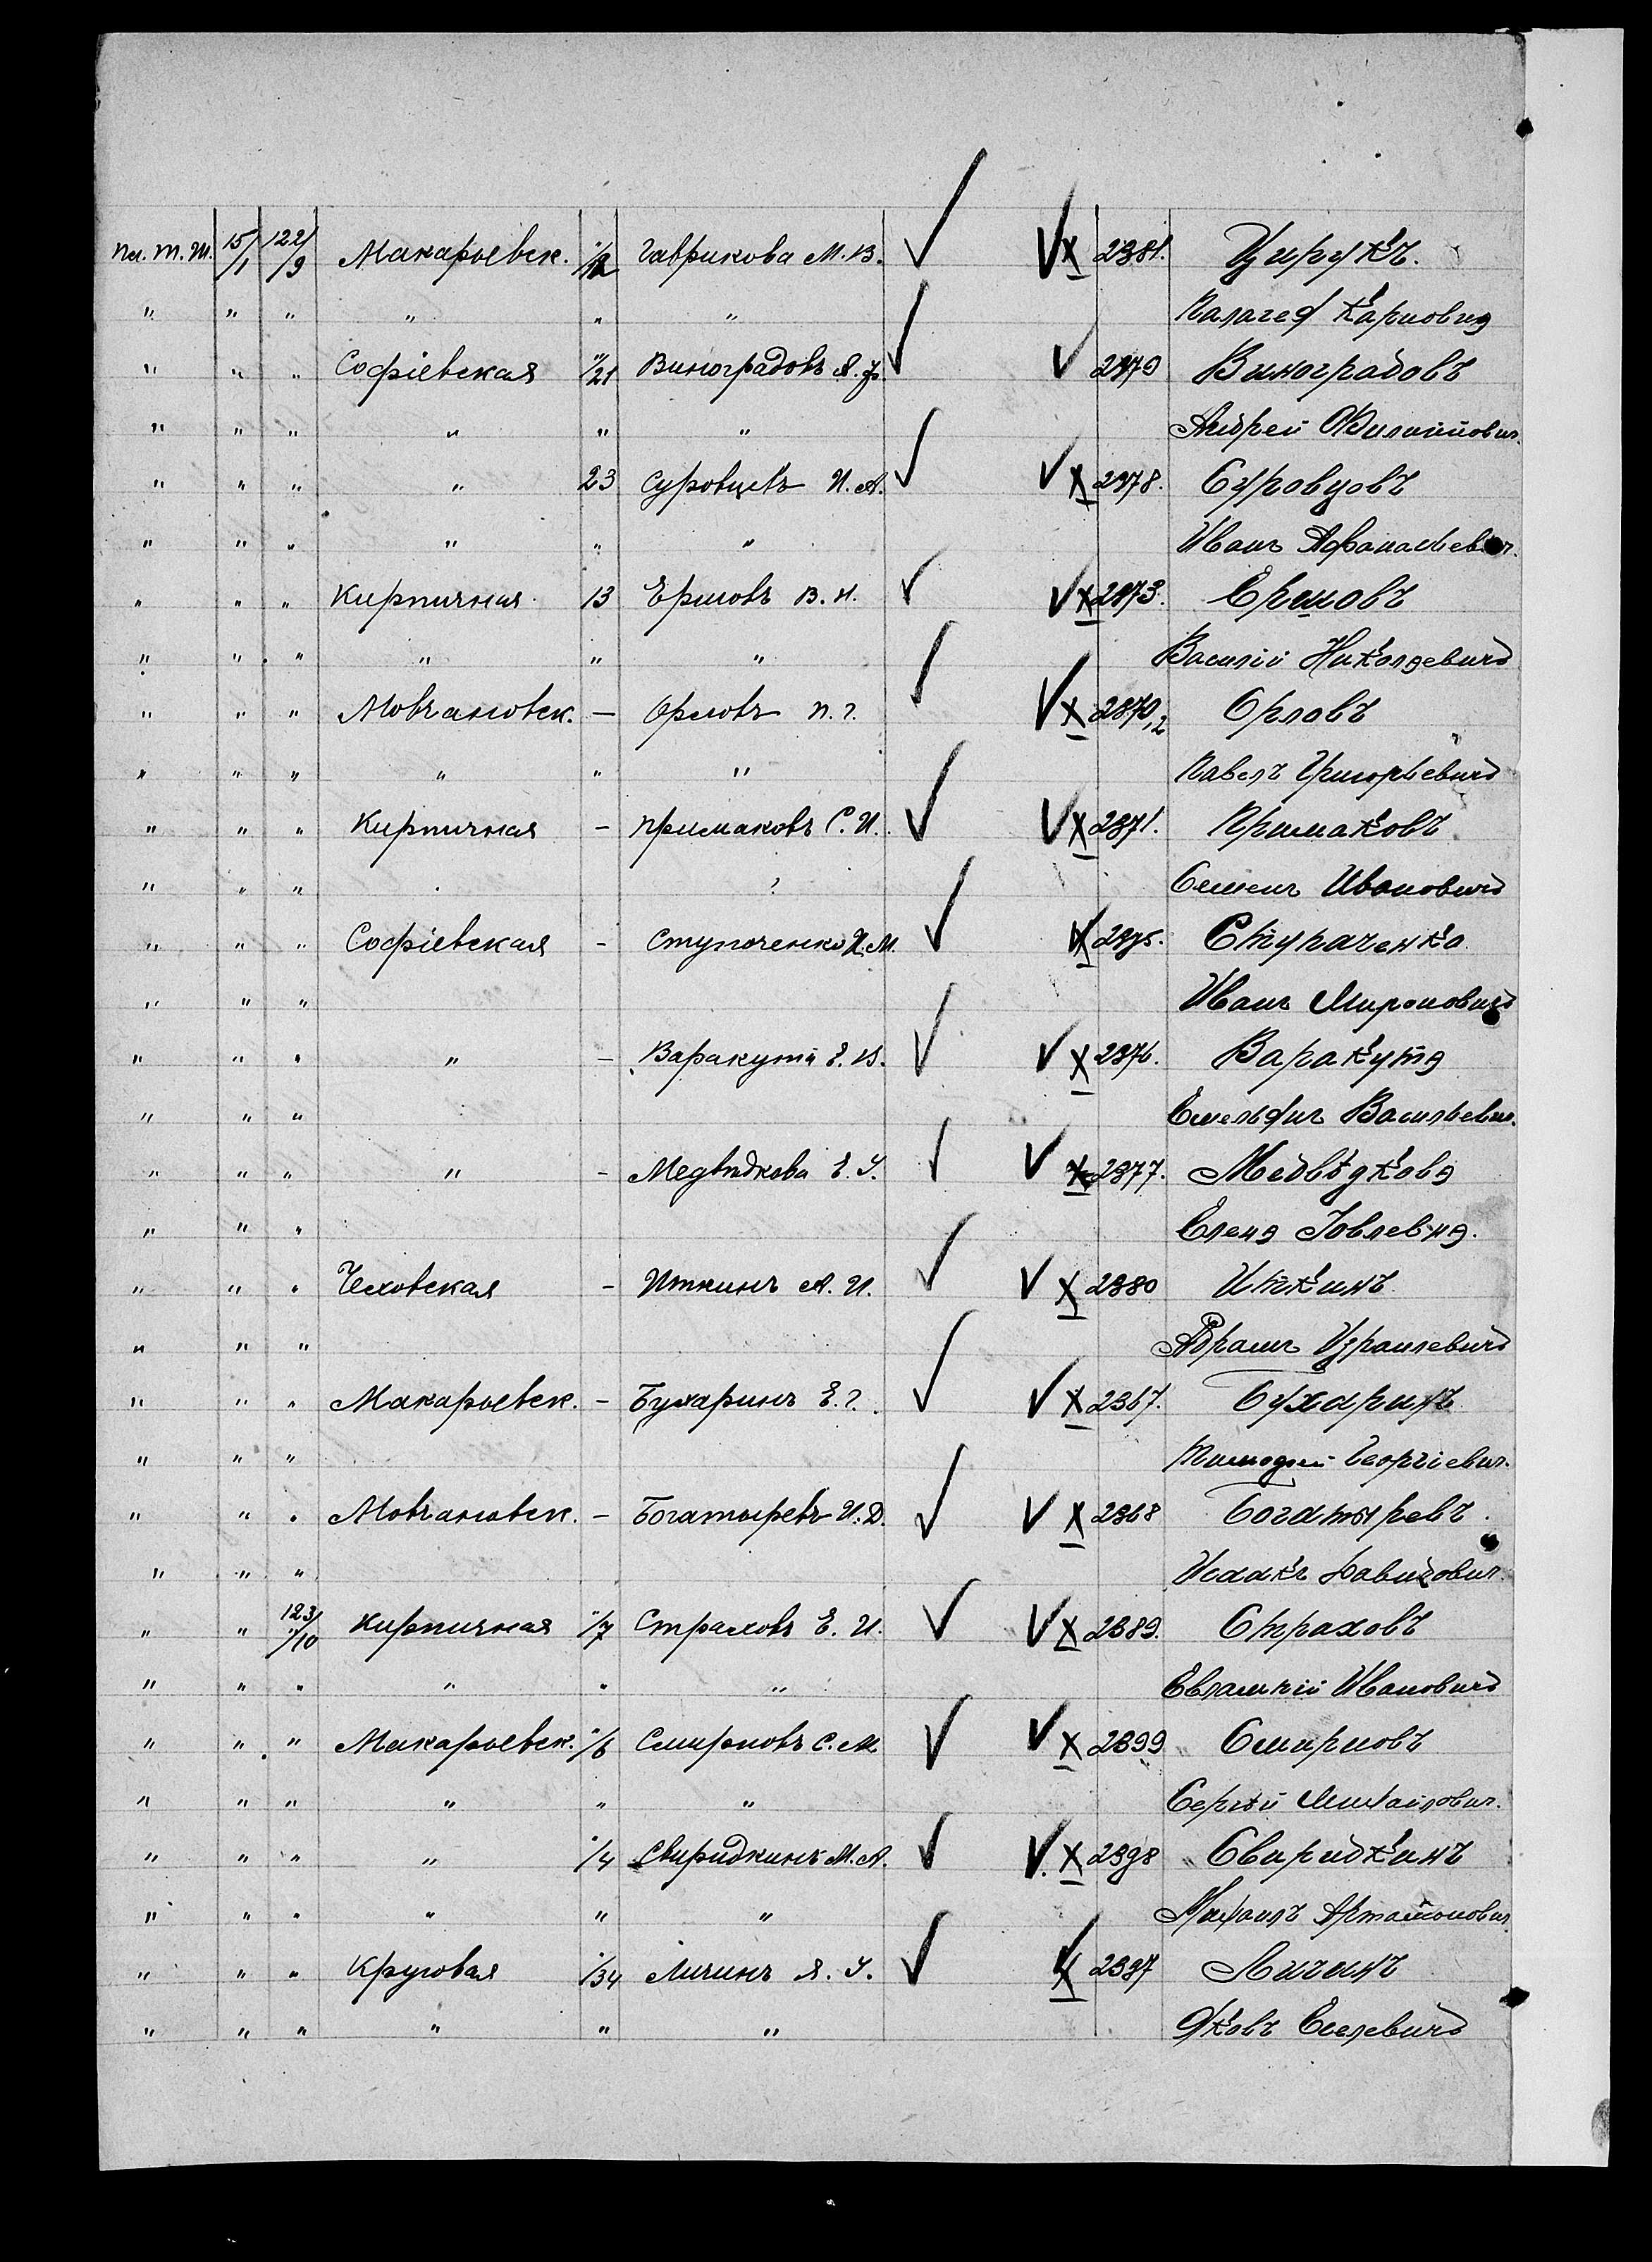 Пл. Т. Ш. 15/1 122/9 Макарьевск. Гаврикова М. В. 2381. Цирукъ.
" " " " " "
" " " Софіевская "/21 Виноградовъ А. Ф. 2379 Виноградовъ
" " " " " " Андрей Филиппович.
" " " " 23 Суровцевъ И. А. 2378. Суровцовъ
" " " " " " Иванъ Афанасьевич.
" " " Кирпичная 13 Ершовъ В. Н. 2373. Ершовъ
" " " " " " Василій Николаевичъ
" " " Мовчановск. — Орловъ П. Г. Орловъ
" " " " " " Павелъ Григорьевичъ
" " " Кирпичная — Примаковъ С. И. 2371. Примаковъ
" " " " Семенъ Ивановичъ
" " " Софіевская — Ступоченко И. М. 2375. Ступаченко
" " " Иванъ Мироновичъ
" " " " — Варакута Е. В. 2376. Варакута
" " " Емельянъ Васильевич.
" " " " — Медвѣдкова Е. І. 2377. Медвѣдкова
" " " Елена Іовлевна.
" " " Чеховская — Иткинъ А. И. 2380 Иткинъ
" " " Абрамъ Израилевичъ
" " " Макарьевск. — Бухаринъ Е. Г. 2367. Бухаринъ
" " " Георгіевич.
" " " Мовчановск. — Богатыревъ И. Д. 2368 Богатыревъ
" " " Исаакъ Давидович.
" " 123/10 Кирпичная "/7 Страховъ Е. И. 2389. Страховъ
" " " " " " Евлампій Ивановичъ
" " " Макарьевск. "/6 Смирновъ С. М. 2399 Смирновъ
" " " " " " Сергѣй Михайлович.
" " " " "/4 Свиридкинъ М. А. 2398 Свиридкинъ
" " " " " " Михаилъ Артамонович
" " " Круговая "/34 Личинъ Я. І. 2397 Личинъ
" " " " " " Яковъ Еселевичъ